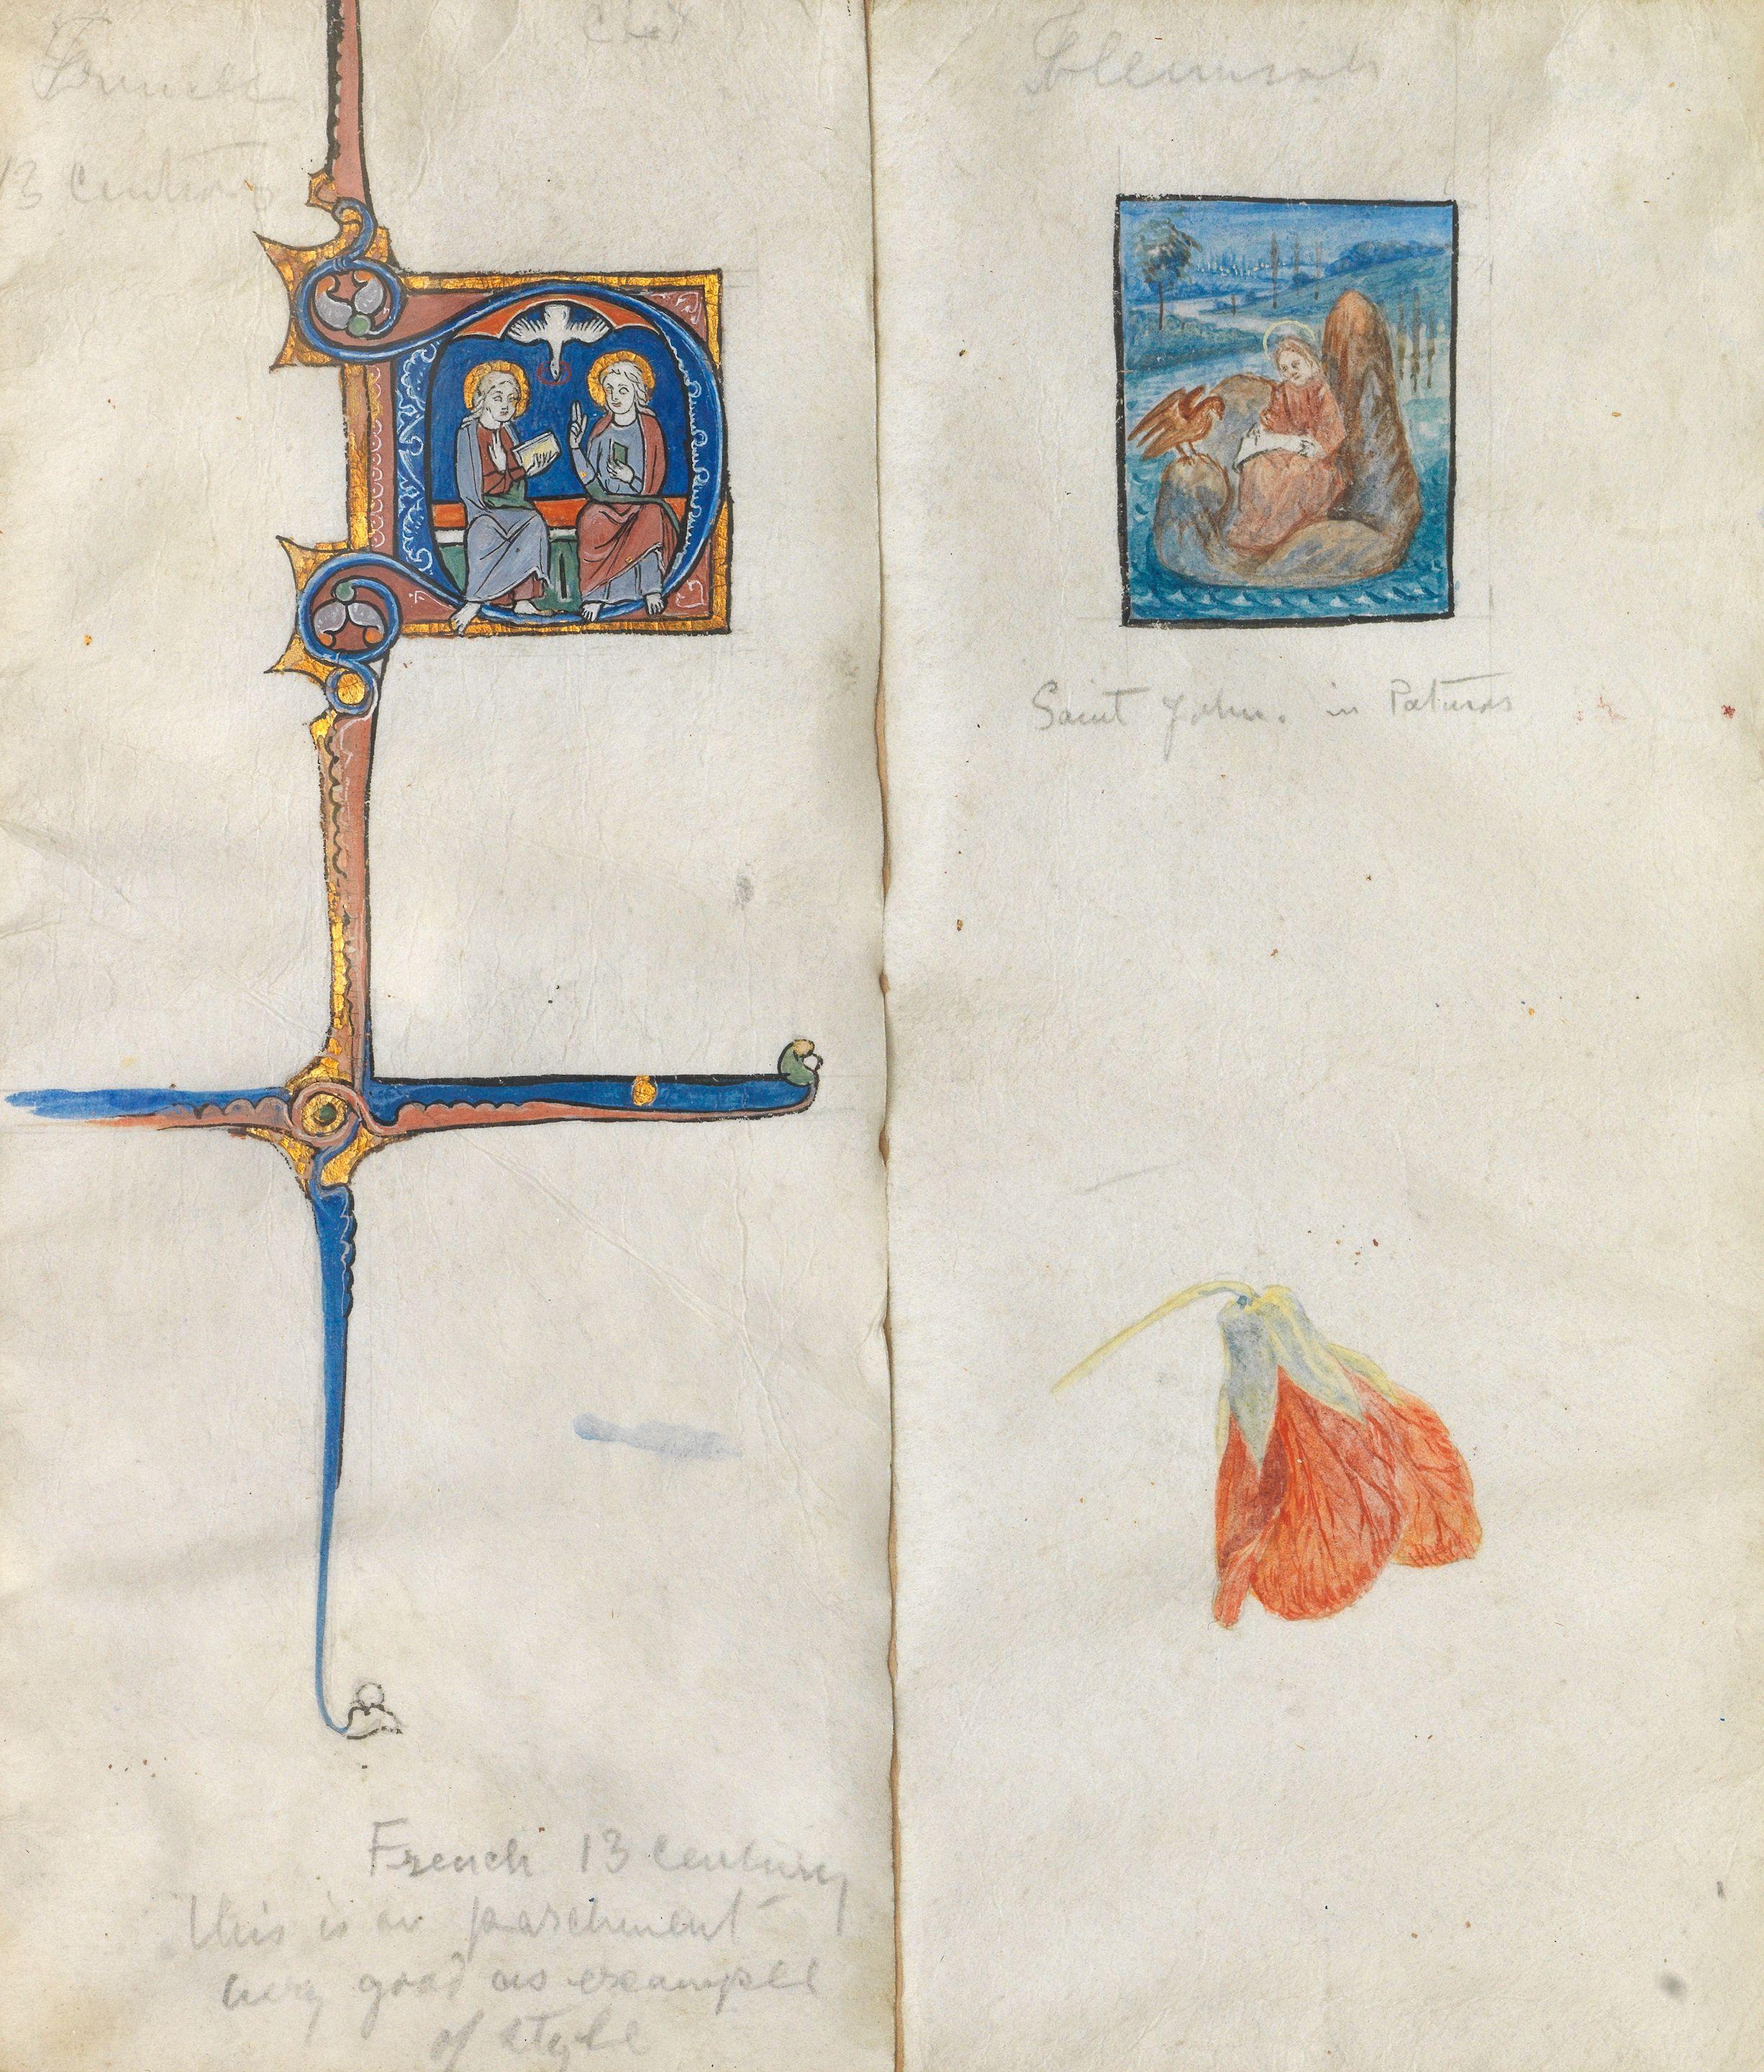 French
13 century
Flemish
Saint John. in Patmos
French 13 century
this is on parchment
very good as example
of style